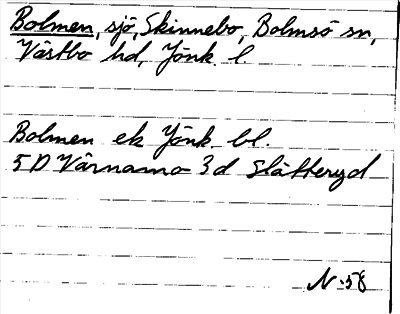 Bolmen, sjö, Skinnebo, Bolmsö sn,
Västbo hd, Jönk. l.
Bolmen ek Jönk. bl.
5D Värnamo 3d Slätteryd
N-58